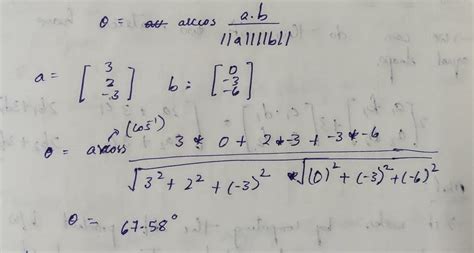 θ = arccos a.b / ||a|| ||b||
a = [3 2 -3] b: [0 -3 -6]
(cos⁻¹)
θ = arccos 3 * 0 + 2 * -3 + -3 * -6 / √3² + 2² + (-3)² * √(0)² + (-3)² + (-6)²
θ = 67.58°